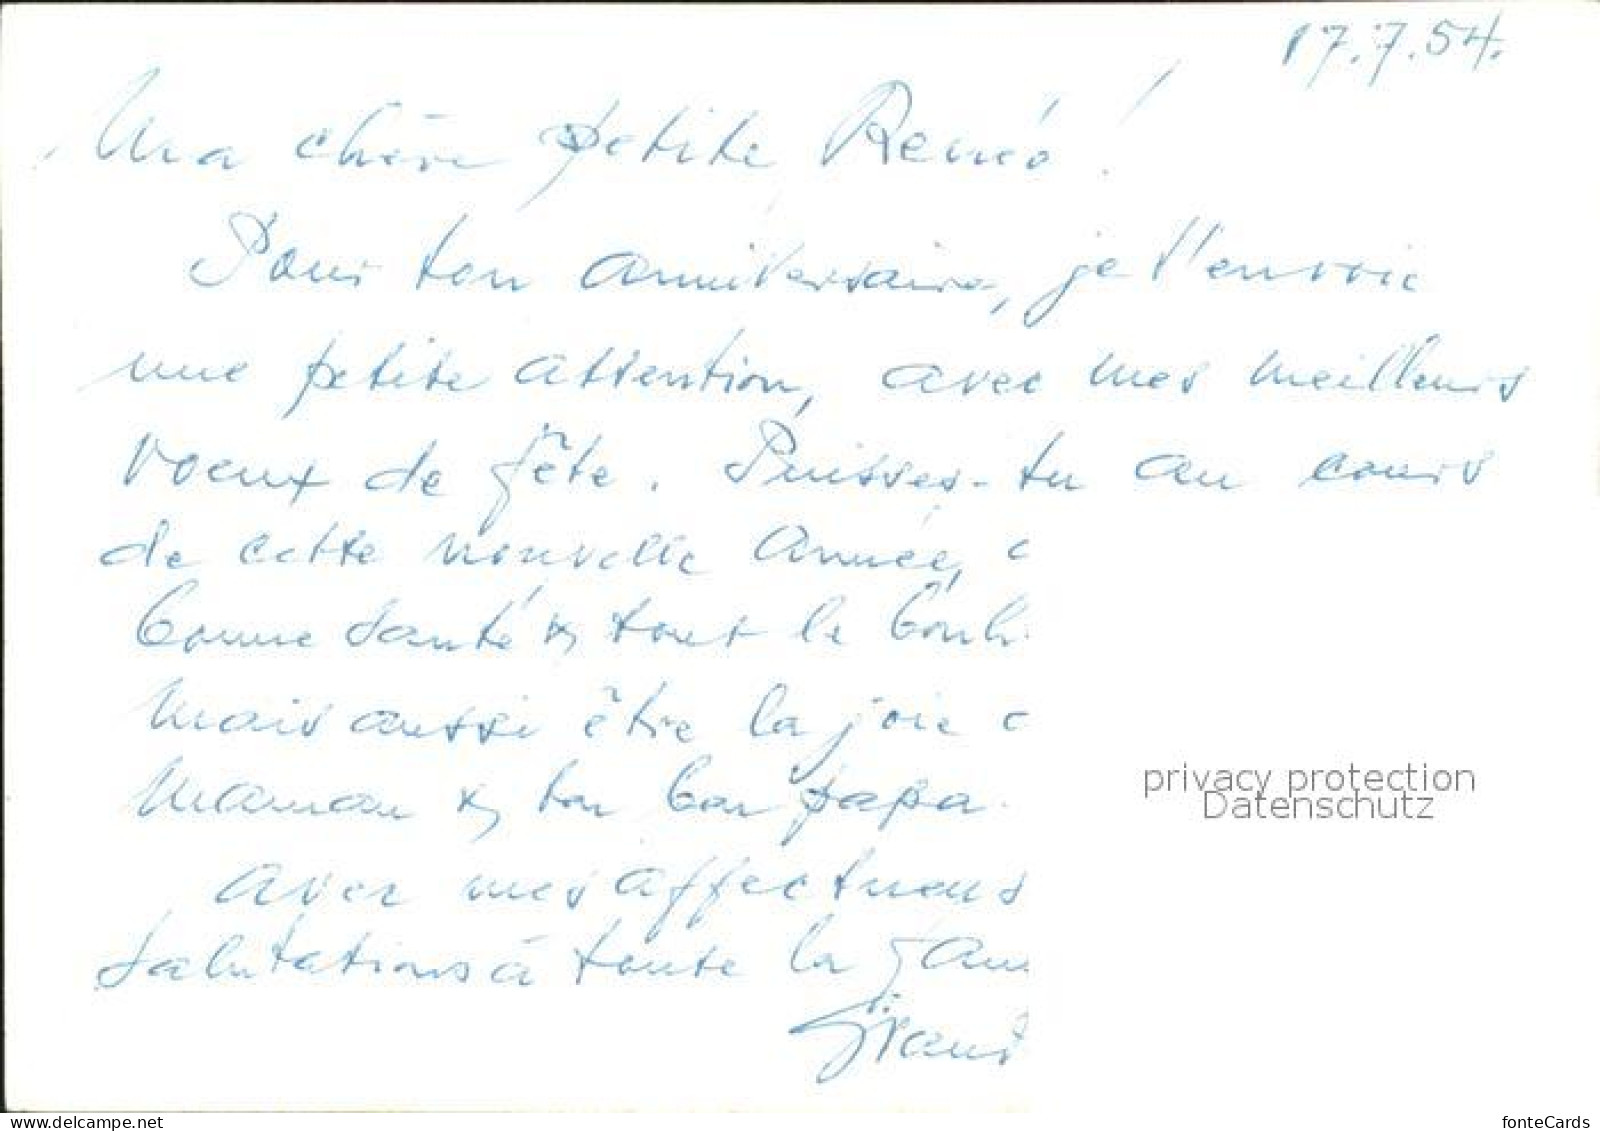 17.7.54.
Ma chère petite René!
Pour ton anniversaire, je t'envoie
une petite attention, avec mes meilleurs
voeux de fête. Puisses-tu au cours
de cette nouvelle année,
bonne santé & tout le bonh
Mais aussi être la joie
Maman & ton bon papa.
Avec mes affectueus
salutations à toute la fam
Grand
privacy protection
Datenschutz
fonteCards